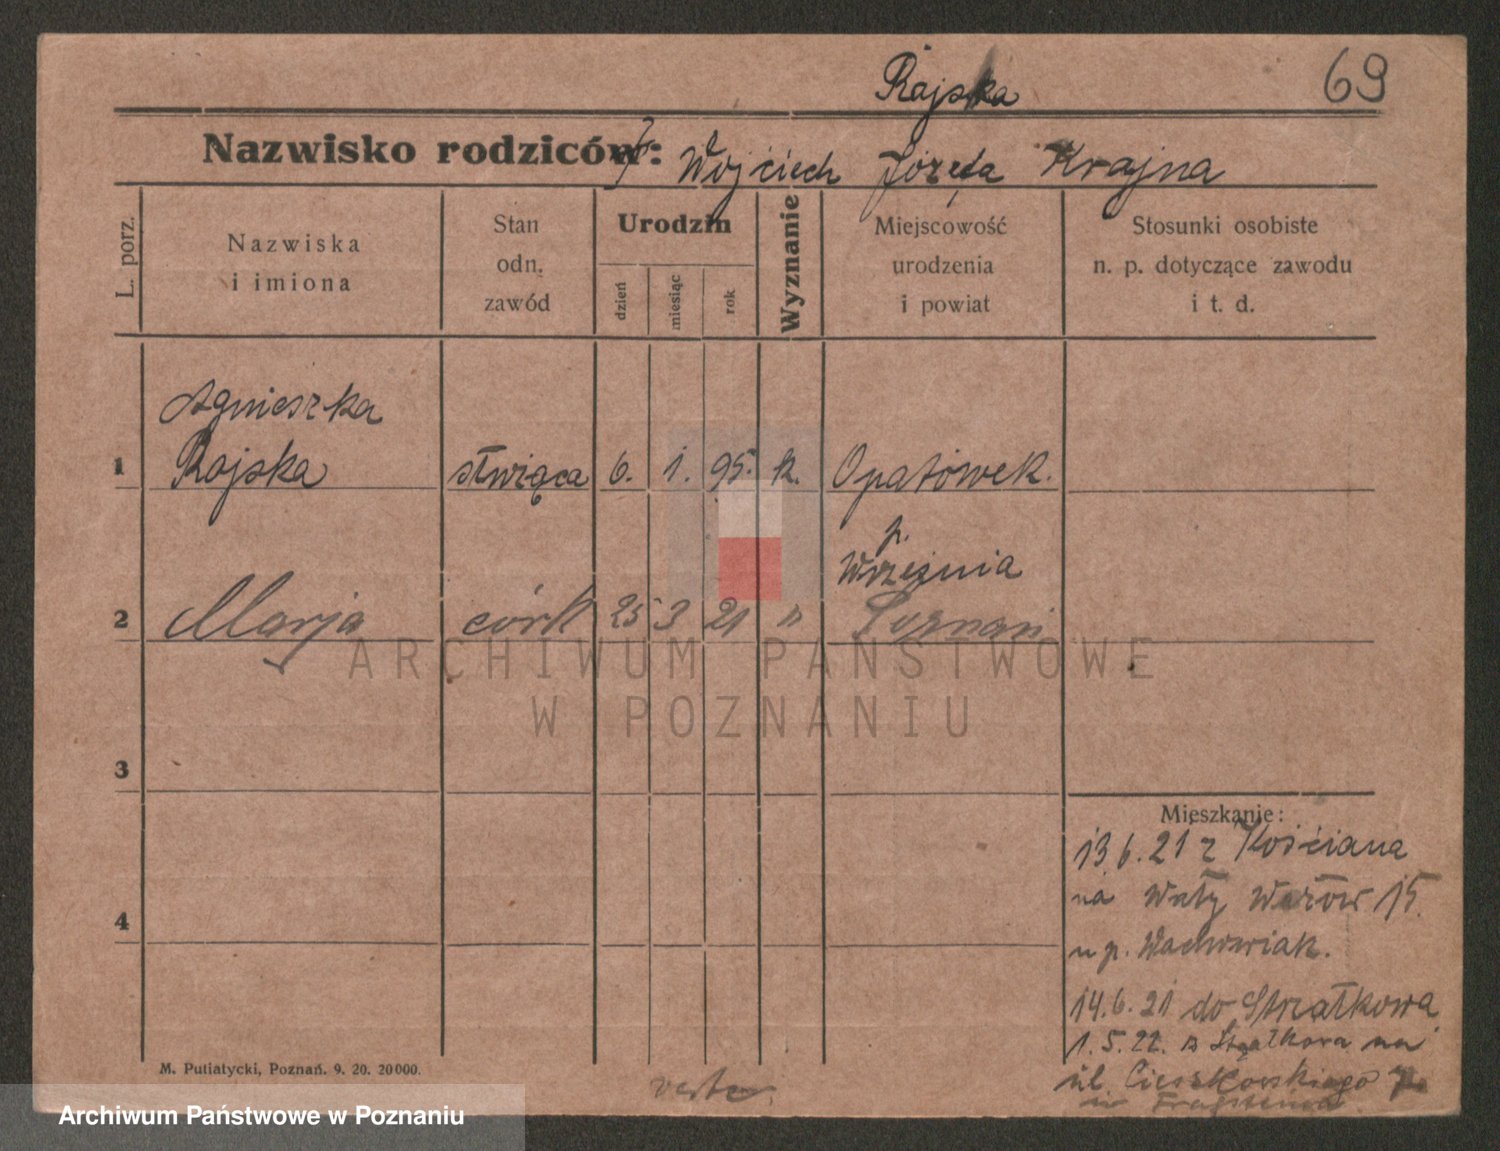 Rajska
69
Nazwisko rodziców: Wojciech Józefa Krajna
L. porz.
Nazwiska i imiona
Stan odn. zawód
Urodzin
dzień
miesiąc
rok
Wyznanie
Miejscowość urodzenia i powiat
Stosunki osobiste n. p. dotyczące zawodu i t. d.
Agnieszka
1 Rajska służąca 6. 1. 95. k. Opatówek.
p.
Września
2 Marja córk 25 3 21 " Poznań
ARCHIWUM PAŃSTWOWE
W POZNANIU
3
Mieszkanie:
13.6.21 z Kościana
na Wały 15.
u p. Wachowiak.
4
14.6.21 do Strzałkowa
1.5.22. z Strzałkowa na
ul. Cieszkowskiego
M. Putiatycki, Poznań. 9. 20. 20000.
verte
Archiwum Państwowe w Poznaniu